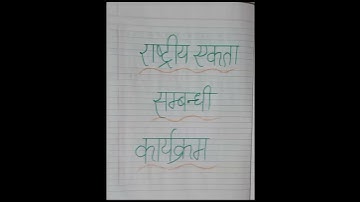 राष्ट्रीय एकता
सम्बन्धी
कार्यक्रम